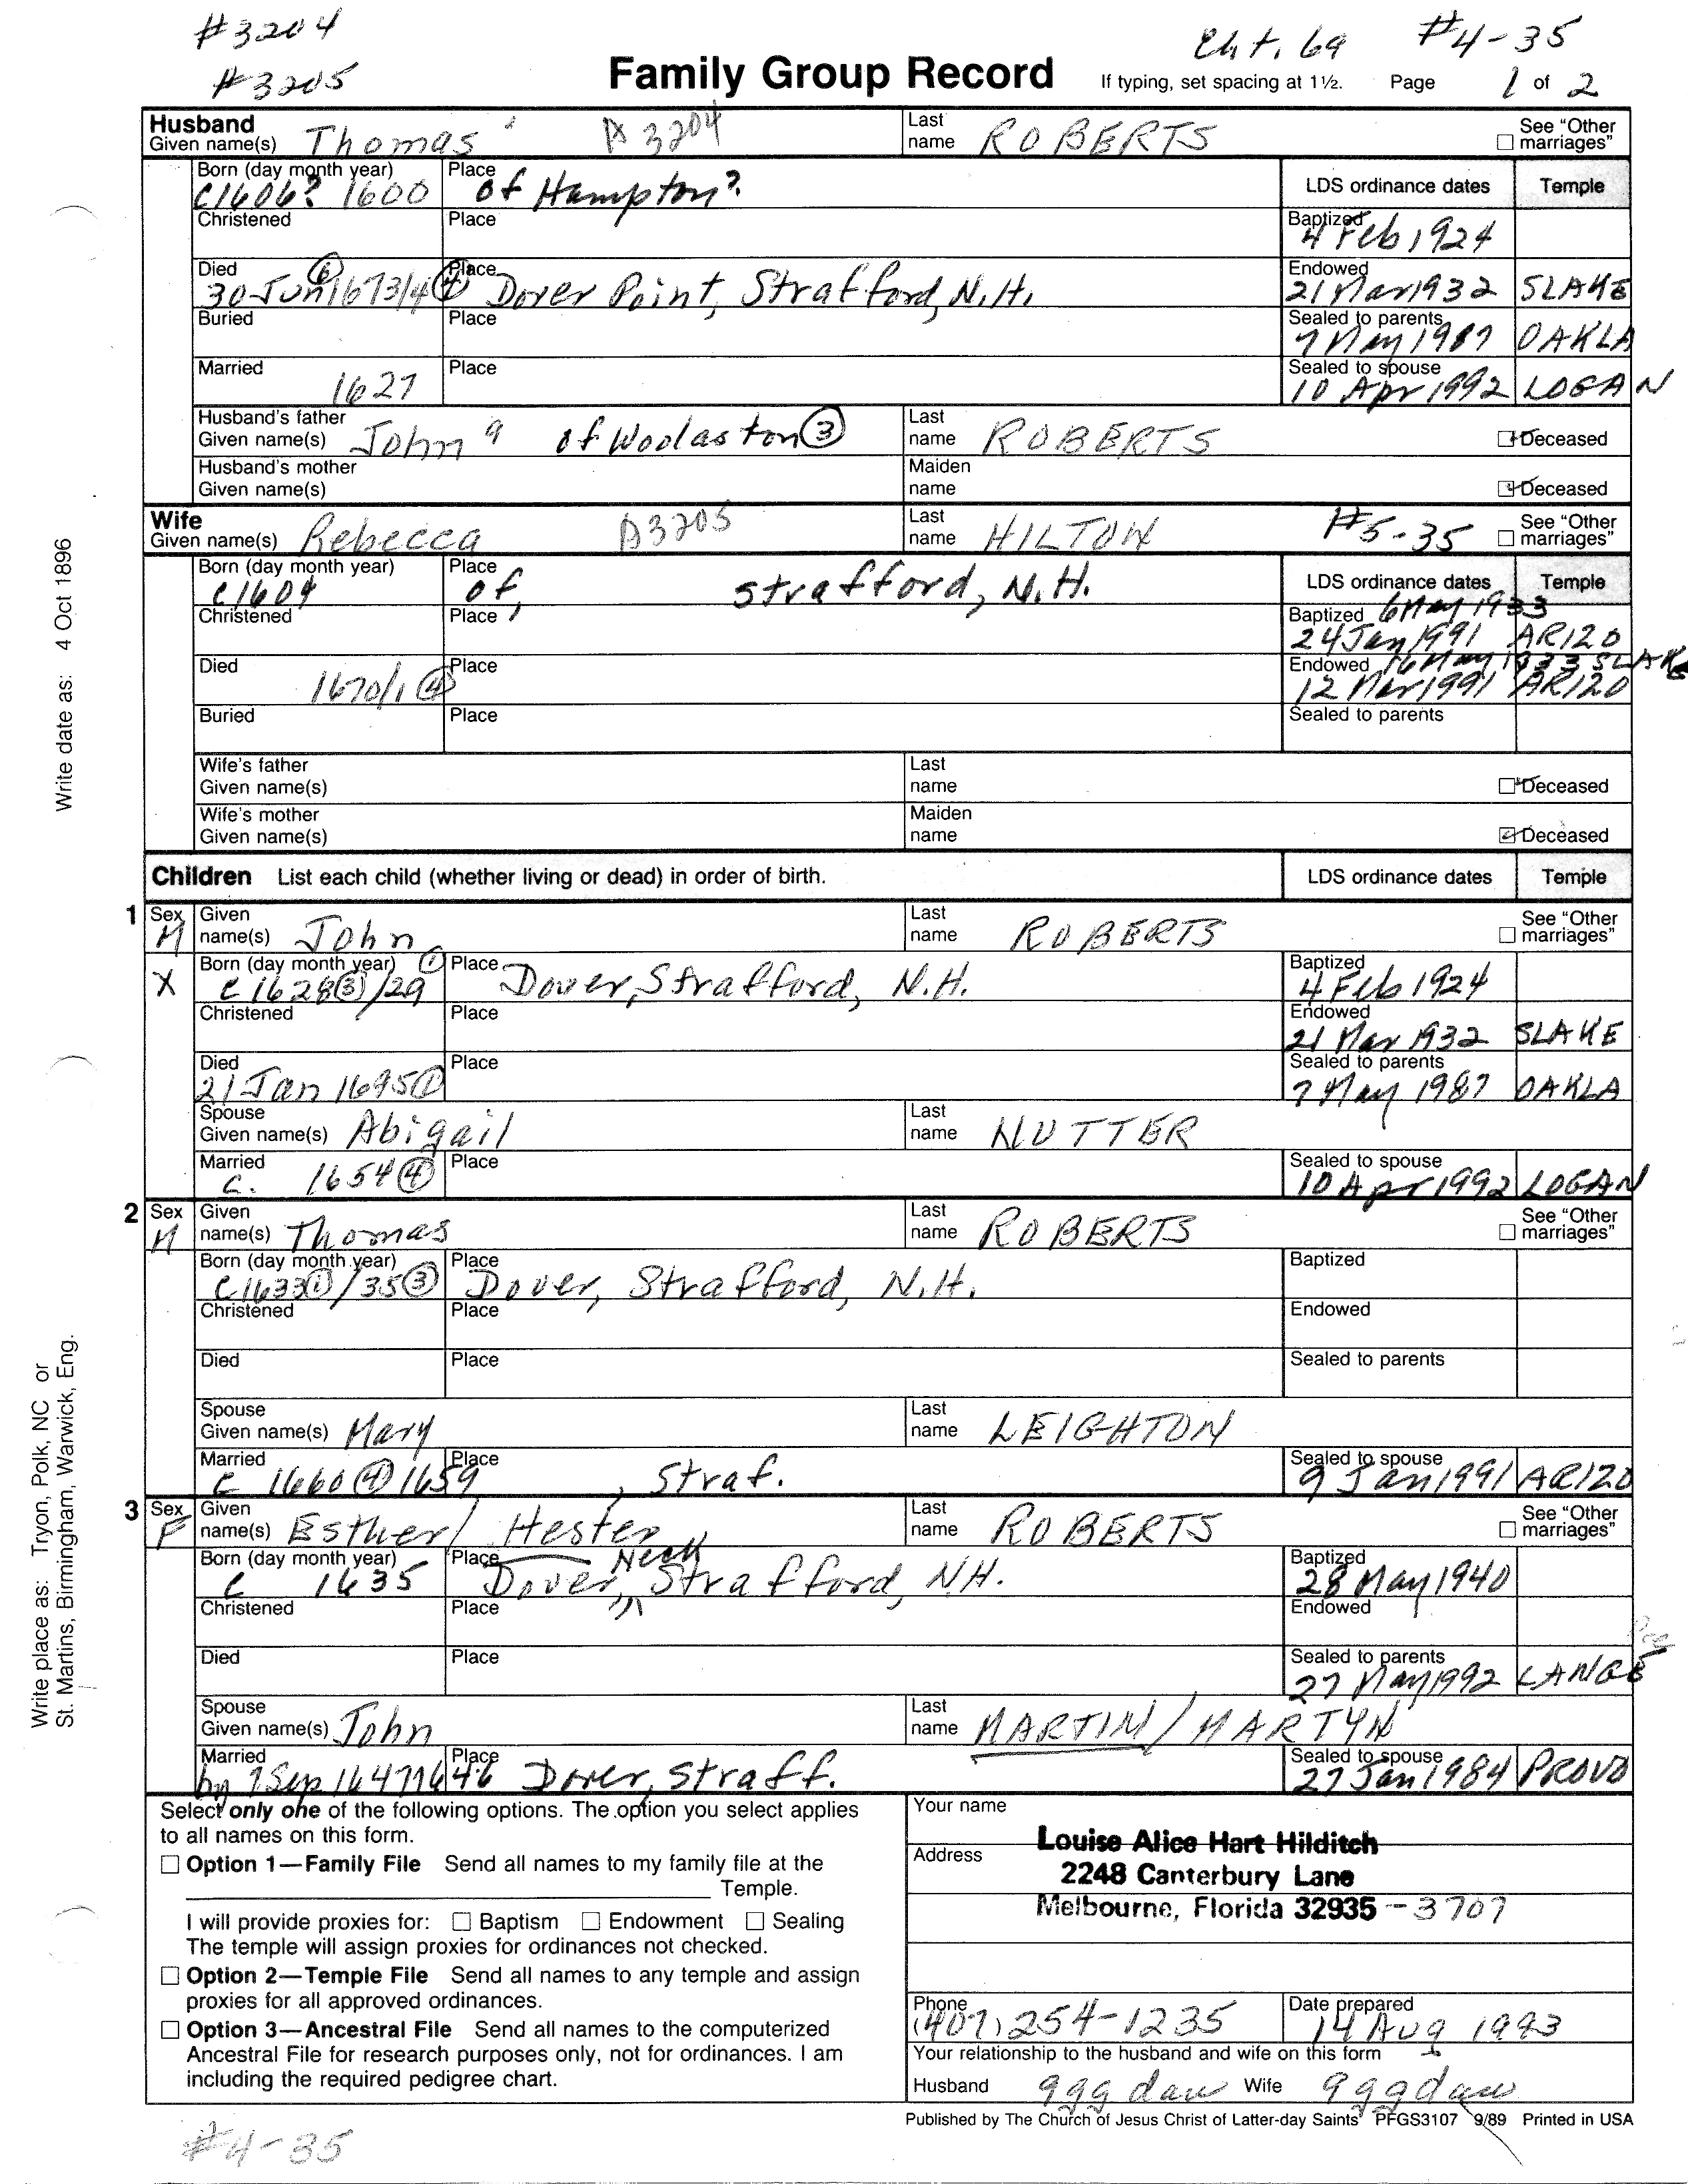 #3204
#3205
Cht. 69 #4-35
Family Group Record If typing, set spacing at 1½. Page 1 of 2
Husband Given name(s) Thomas A 3204 Last name ROBERTS □ See "Other marriages"
Born (day month year) C1606? 1600 Place of Hampton? LDS ordinance dates Temple
Christened Place Baptized 4 Feb 1924
Died 30 Jun ⑥ 1673/4 ④ Place Dover Point, Strafford, N.H. Endowed 21 Mar 1932 SLAKE
Buried Place Sealed to parents 7 May 1987 OAKLA
Married 1627 Place Sealed to spouse 10 Apr 1992 LOGAN
Husband's father Given name(s) John of Woolaston ③ Last name ROBERTS Deceased
Husband's mother Given name(s) Maiden name Deceased
Wife Given name(s) Rebecca A3205 Last name HILTON #5-35 □ See "Other marriages"
Born (day month year) C1604 Place of, Strafford, N.H. LDS ordinance dates Temple
Christened Place Baptized 6 May 1933
24 Jan 1991 ARIZO
Died 1670/1 ④ Place Endowed 16 May 1933 SLAKE
12 Mar 1991 ARIZO
Buried Place Sealed to parents
Wife's father Given name(s) Last name Deceased
Wife's mother Given name(s) Maiden name Deceased
Children List each child (whether living or dead) in order of birth. LDS ordinance dates Temple
1 Sex M Given name(s) John Last name ROBERTS □ See "Other marriages"
X Born (day month year) C 1628 ③ /29 ① Place Dover, Strafford, N.H. Baptized 4 Feb 1924
Christened Place Endowed 21 Mar 1932 SLAKE
Died 21 Jan 1695 ① Place Sealed to parents 7 May 1987 OAKLA
Spouse Given name(s) Abigail Last name NUTTER
Married C. 1654 ④ Place Sealed to spouse 10 Apr 1992 LOGAN
2 Sex M Given name(s) Thomas Last name ROBERTS □ See "Other marriages"
Born (day month year) C1633 ① /35 ③ Place Dover, Strafford, N.H. Baptized
Christened Place Endowed
Died Place Sealed to parents
Spouse Given name(s) Mary Last name LEIGHTON
Married C 1660 ④ 1659 Place , Straf. Sealed to spouse 9 Jan 1991 ARIZO
3 Sex F Given name(s) Esther/ Hester Last name ROBERTS □ See "Other marriages"
Born (day month year) C 1635 Place Dover Neck, Strafford, NH. Baptized 28 May 1940
Christened Place Endowed
Died Place Sealed to parents 27 May 1992 LANGE
Spouse Given name(s) John Last name MARTIN / MARTYN
Married by 7 Sep 1647 1646 Place Dover, Straff. Sealed to spouse 27 Jan 1984 PROVO
Select only one of the following options. The option you select applies
to all names on this form.
□ Option 1—Family File Send all names to my family file at the
Temple.
I will provide proxies for: □ Baptism □ Endowment □ Sealing
The temple will assign proxies for ordinances not checked.
□ Option 2—Temple File Send all names to any temple and assign
proxies for all approved ordinances.
□ Option 3—Ancestral File Send all names to the computerized
Ancestral File for research purposes only, not for ordinances. I am
including the required pedigree chart.
Your name Louise Alice Hart Hilditch
Address 2248 Canterbury Lane
Melbourne, Florida 32935 -3707
Phone (407) 254-1235 Date prepared 14 Aug 1993
Your relationship to the husband and wife on this form
Husband ggg dau Wife gggdau
Published by The Church of Jesus Christ of Latter-day Saints PFGS3107 9/89 Printed in USA
#4-35
Write date as: 4 Oct 1896
Write place as: Tryon, Polk, NC or
St. Martins, Birmingham, Warwick, Eng.